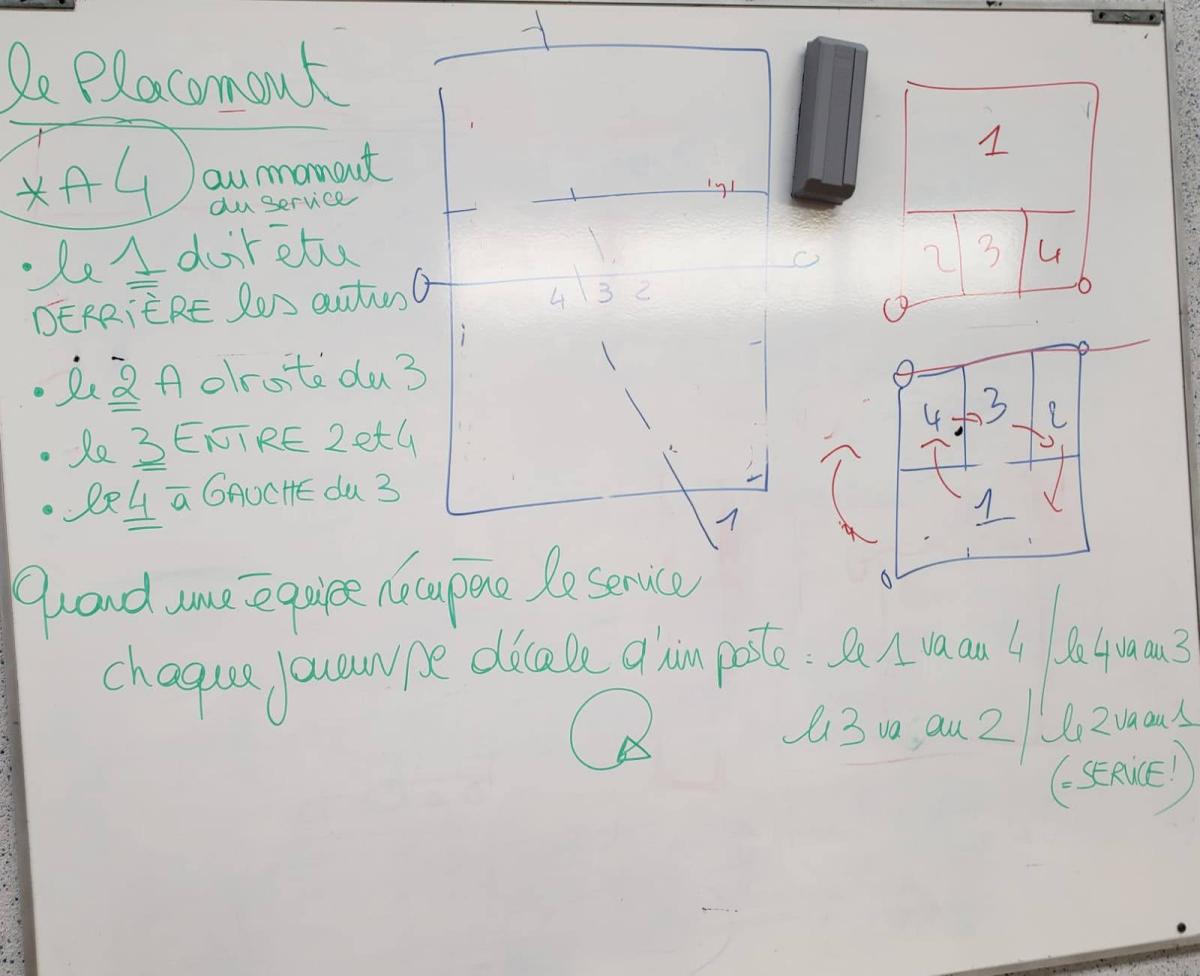 le Placement
*A4 au moment
du service
• le 1 doit être
DERRIÈRE les autres
• le 2 A droite du 3
• le 3 ENTRE 2 et 4
• le 4 à GAUCHE du 3
4 3 2
1
1
2 3 4
4 3 2
1
Quand une équipe récupère le service
chaque joueur se décale d'un poste : le 1 va au 4 / le 4 va au 3
le 3 va au 2 / le 2 va au 1
(= SERVICE !)